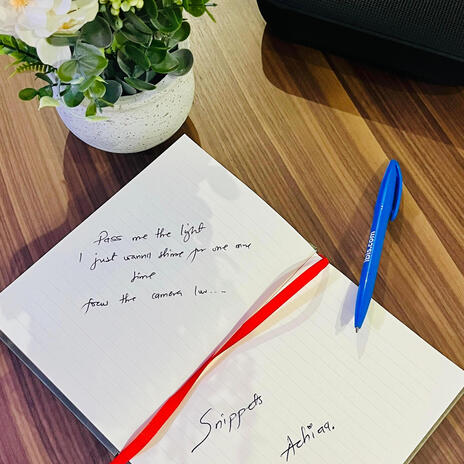 Pass me the light
I just wanna shine for one more
time
the camera
Snippets
Achiaa.
1915.com